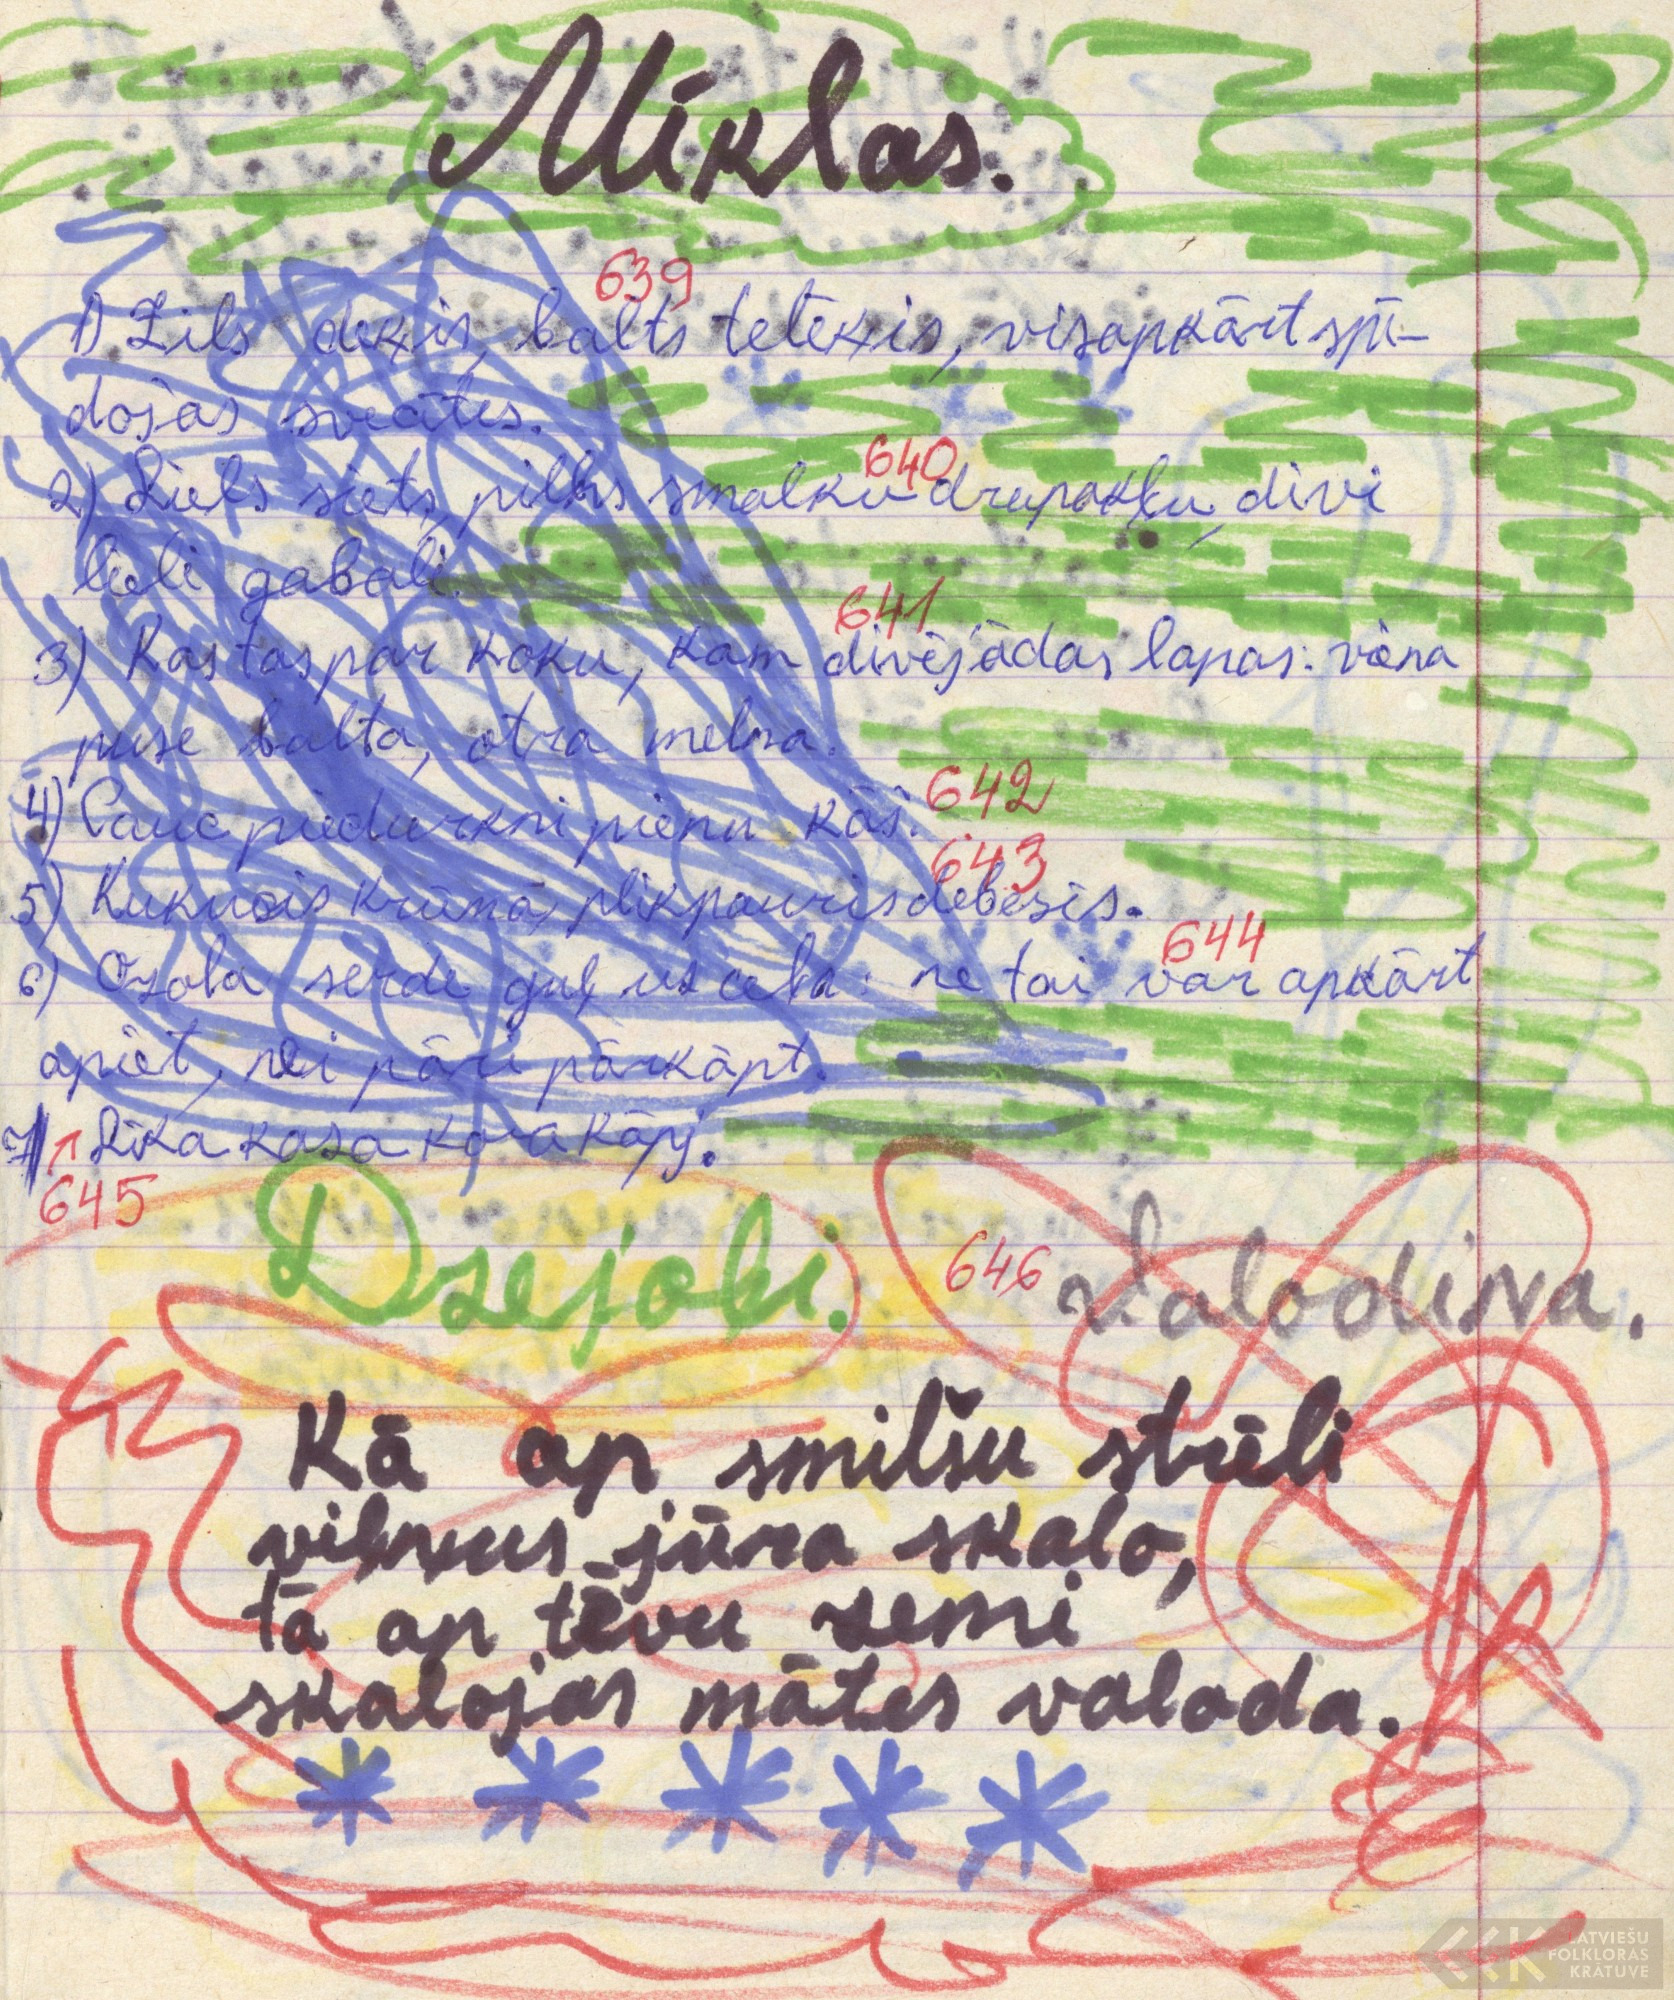 Mīklas.
639
1) Zils deķis, balts tetēķis, visapkārt spī-
dojas svecītes.
640
2) Liels siets, pilns smalku drupaklu, divi
lieli gabali.
641
3) Kas tas par koku, kam divējādas lapas: viena
puse balta, otra melna.
642
4) Cauc piedurkni pienu kāš.
643
5) Kuknosis krūmā, plikpauris debesīs.
644
6) Ozola serde guļ uz ceļa: ne tai var apkārt
apiet, nei pāri pārkāpt.
7) Lika kaza kokā kāpj.
645
Dzejoļi.
646 Valodiņa.
Kā ap smilšu strēli
viļņus jūra skalo,
tā ap tēvu zemi
skalojas mātes valoda.
LATVIEŠU
FOLKLORAS
KRĀTUVE